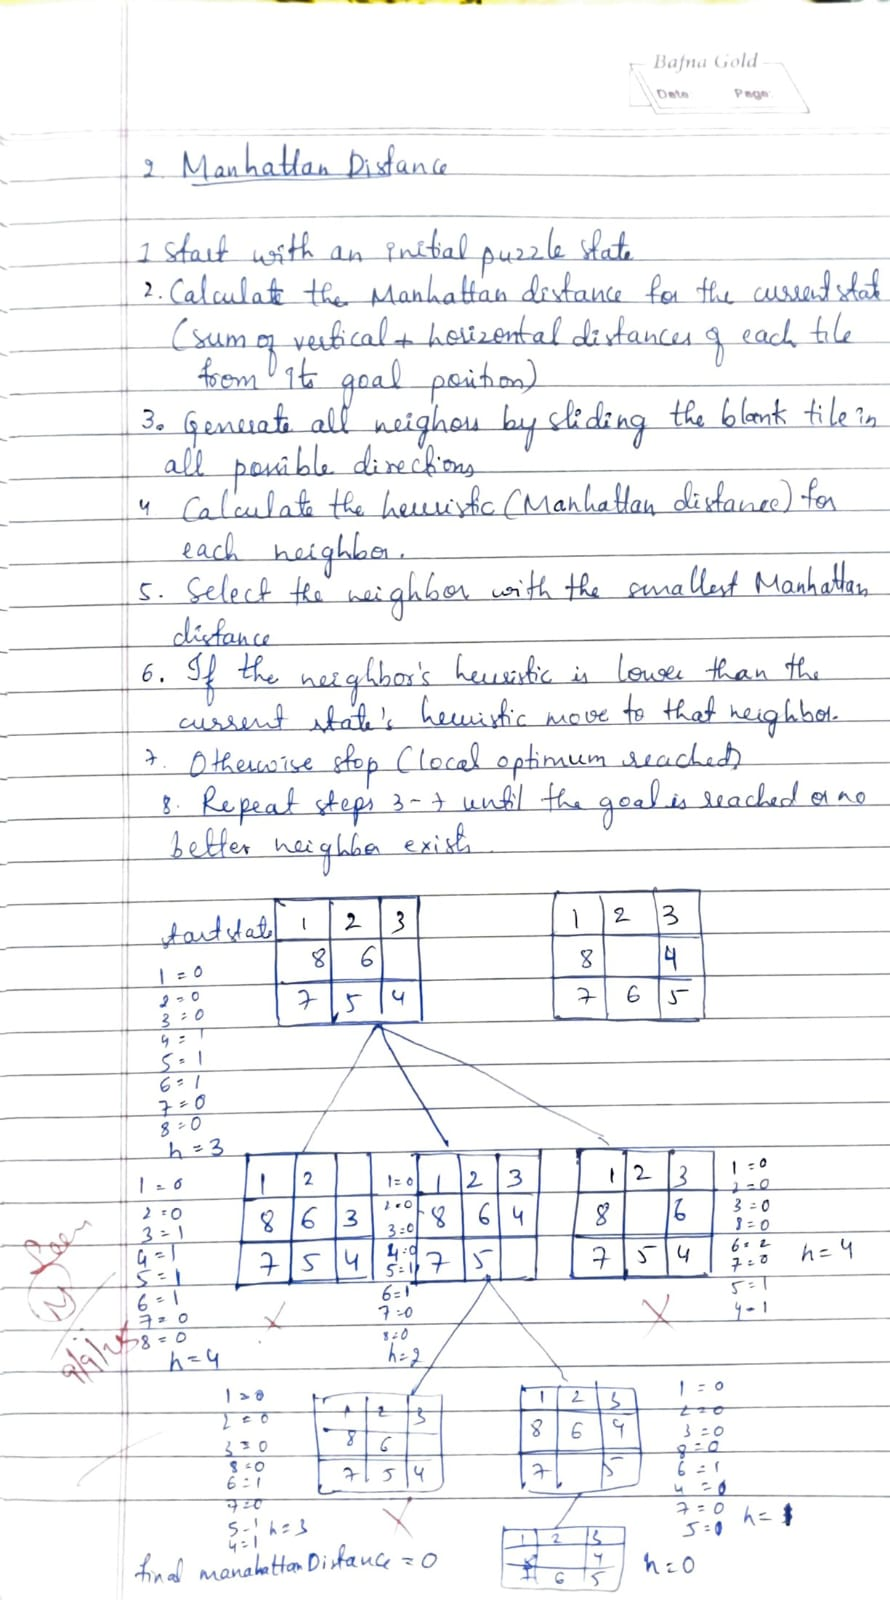 Bafna Gold
Date Page:
2. Manhattan Distance
1 Start with an initial puzzle state
2. Calculate the Manhattan distance for the current state
(sum of vertical + horizental distances of each tile
from its goal position)
3. Generate all neighors by sliding the blank tile in
all possible directions
4 Calculate the heuristic (Manhattan distance) for
each neighbor.
5. Select the neighbor with the smallest Manhattan
distance
6. If the neighbor's heuristic is lower than the
current state's heuristic move to that neighbor.
7. Otherwise stop (local optimum reached)
8. Repeat steps 3-7 until the goal is reached or no
better neighbor exists.
start state
1 2 3
8 6
7 5 4
1 2 3
8 4
7 6 5
1 = 0
2 = 0
3 = 0
4 = 1
5 = 1
6 = 1
7 = 0
8 = 0
h = 3
1 = 0
2 = 0
3 = 1
4 = 1
5 = 1
6 = 1
7 = 0
8 = 0
h = 4
1 2
8 6 3
7 5 4
1 = 0
2 = 0
3 = 0
4 = 0
5 = 1
6 = 1
7 = 0
8 = 0
h = 2
1 2 3
8 6 4
7 5
1 2 3
8 6
7 5 4
1 = 0
2 = 0
3 = 0
8 = 0
6 = 2
7 = 0
5 = 1
4 = 1
h = 4
Seen
9/9/25
1 = 0
2 = 0
3 = 0
8 = 0
6 = 1
7 = 0
5 = 1 h = 3
4 = 1
1 2 3
8 6
7 5 4
1 2 3
8 6 4
7 5
1 = 0
2 = 0
3 = 0
8 = 0
6 = 1
4 = 0
7 = 0
5 = 0 h = 1
1 2 3
4
6 5
h = 0
final manahattan Distance = 0